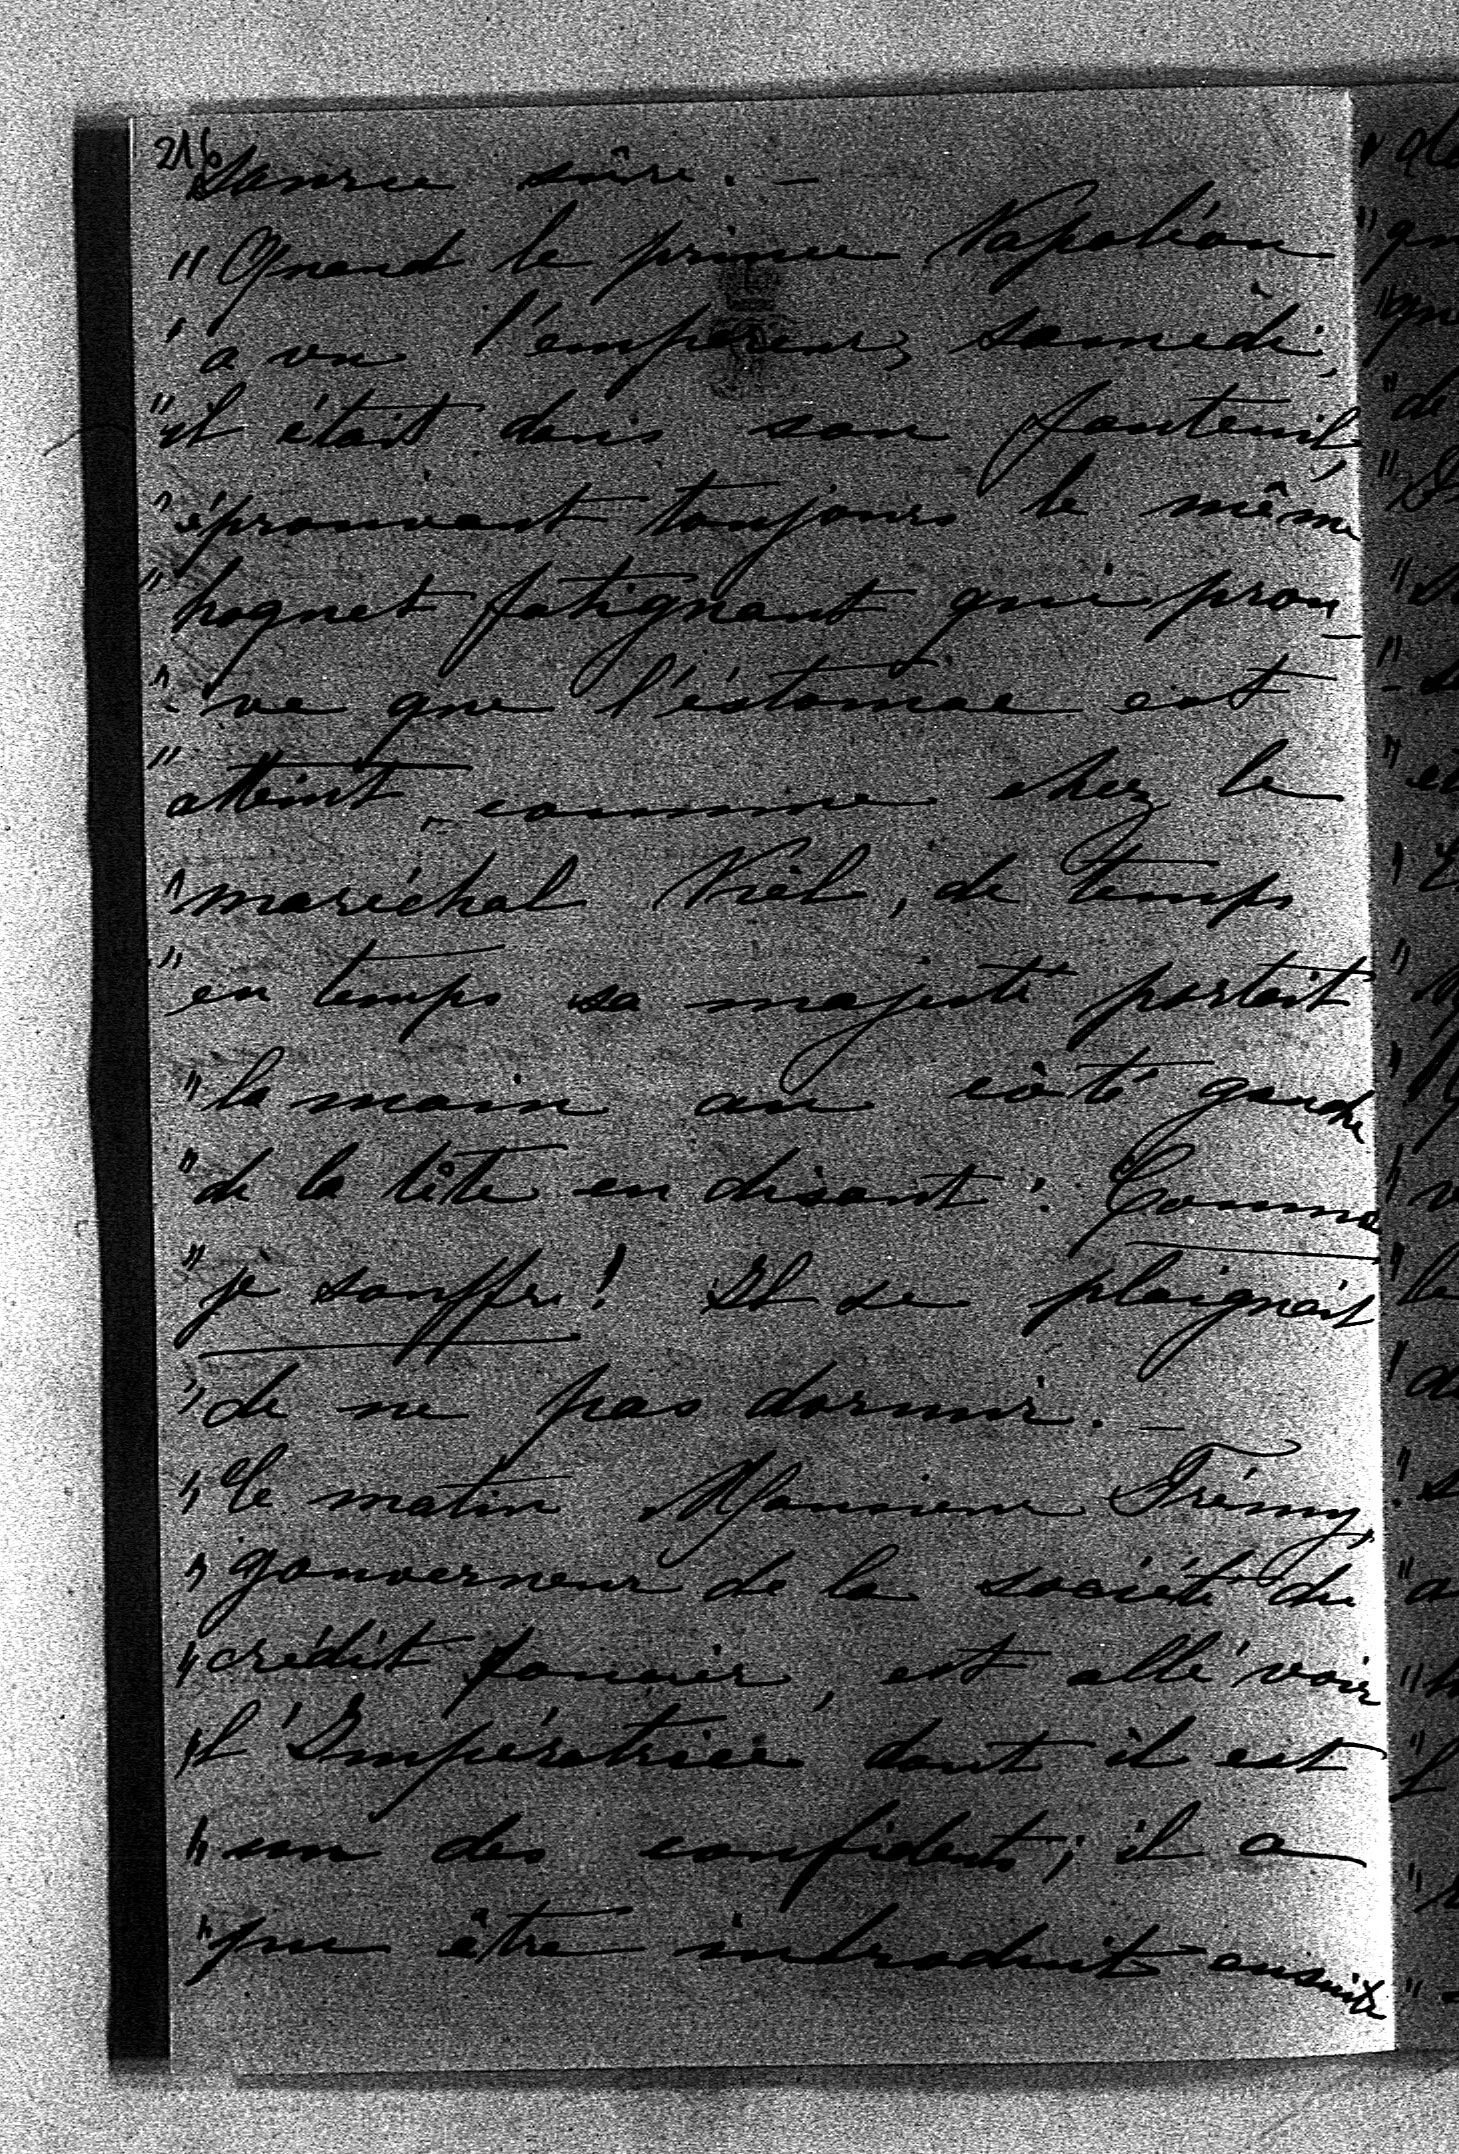 216
source sûre. —
"Quand le prince Napoléon
"a vu l'empereur, samedi,
"il était dans son fauteuil,
"éprouvant toujours le même
"hoquet fatiguant qui prou-
"-ve que l'éstomac est
"atteint, comme chez le
"maréchal Niel, de temps
"en temps sa majesté portait
"la main au côté gauche
"de la tête en disant: Comme
"je souffre! Il se plaignait
"de ne pas dormir. —
"Ce matin Monsieur Frémy,
"gouverneur de la société du
"crédit foncier, est allé voir
"l'Impératrice dont il est
"un des confidents; il a
"pu être introduit ensuite